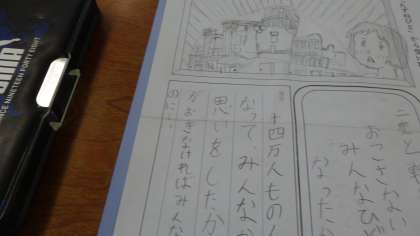 二度と
おこさない
みんなひ
なったか
十四万人もの
なって、みんな
思いをしたか
がおきなければみんな
のに…
NCE NINETEEN FORTY EIGHT